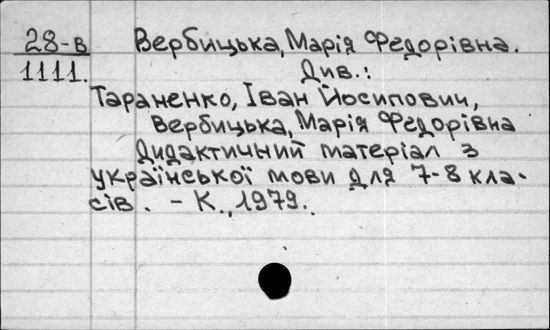 28-в Вербицька, Марія Федорівна.
1111. Див.:
Тараненко, Іван Йосипович,
Вербицька, Марія Федорівна
Дидактичний матеріал з
української мови для 7-8 кла-
сів. - К., 1979.